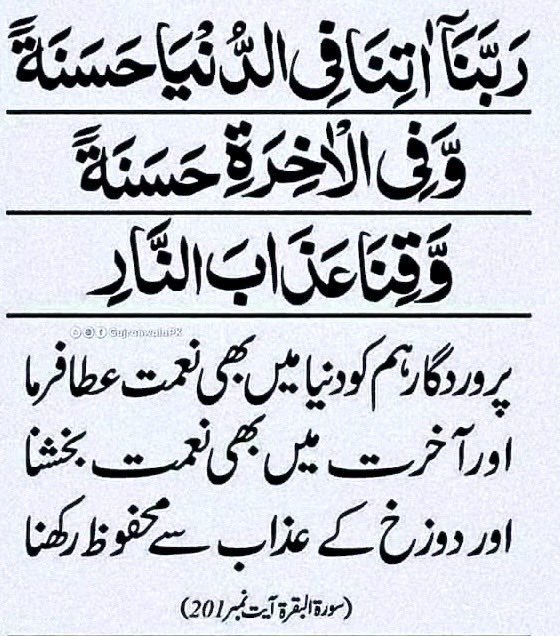 رَبَّنَآ اٰتِنَا فِی الدُّنْیَا حَسَنَةً
وَّ فِی الْاٰخِرَةِ حَسَنَةً
وَّ قِنَا عَذَابَ النَّارِ
GujranwalaPK
پروردگار ہم کو دنیا میں بھی نعمت عطا فرما
اور آخرت میں بھی نعمت بخشنا
اور دوزخ کے عذاب سے محفوظ رکھنا
(سورۃ البقرۃ آیت نمبر 201)